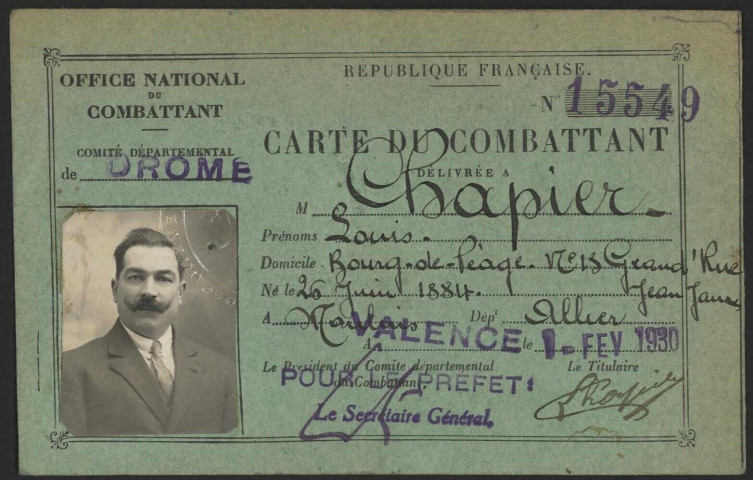 OFFICE NATIONAL
DU
COMBATTANT
COMITÉ DÉPARTEMENTAL
de DROME
RÉPUBLIQUE FRANÇAISE.
N° 15549
CARTE DU COMBATTANT
DÉLIVRÉE A
M Chapier
Prénoms Louis.
Domicile Bourg-de-Péage. N° 18 Grand'Rue
Jean Jaurès
Né le 26 Juin 1884.
A Dépt Allier
A VALENCE le 1- FEV 1930
Le Président du Comité départemental
du Combattant,
Le Titulaire
POUR LE PRÉFET:
Le Secrétaire Général.
LChapier